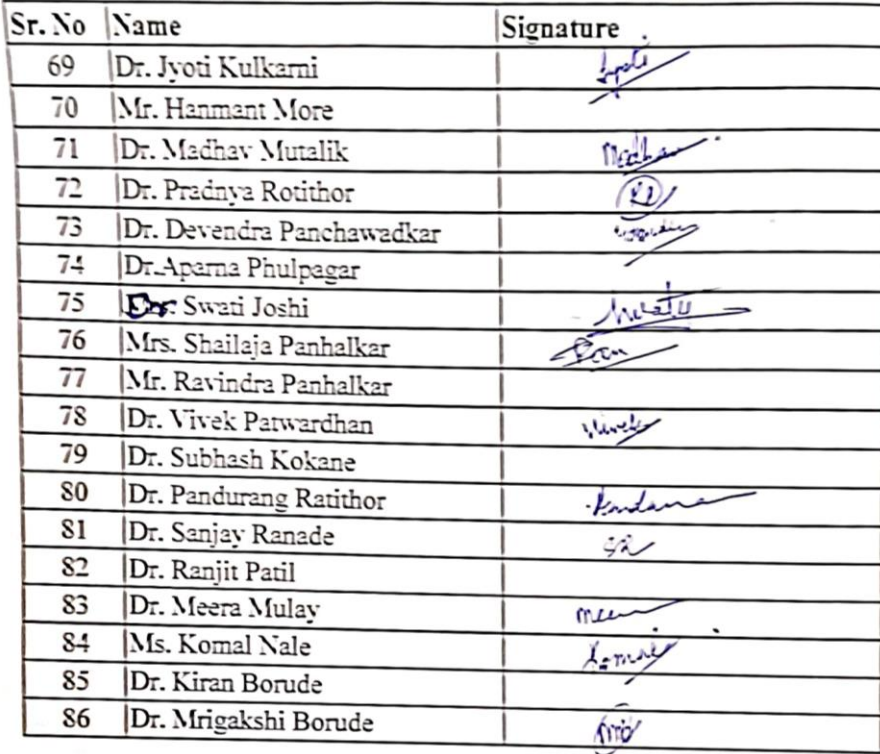 Sr. No Name Signature
69 Dr. Jyoti Kulkarni Jyoti
70 Mr. Hanmant More
71 Dr. Madhav Mutalik Madhav
72 Dr. Pradnya Rotithor
73 Dr. Devendra Panchawadkar
74 Dr.Aparna Phulpagar
75 Swati Joshi Swati
76 Mrs. Shailaja Panhalkar
77 Mr. Ravindra Panhalkar
78 Dr. Vivek Patwardhan Vivek
79 Dr. Subhash Kokane
80 Dr. Pandurang Ratithor
81 Dr. Sanjay Ranade SR
82 Dr. Ranjit Patil
83 Dr. Meera Mulay
84 Ms. Komal Nale Komal
85 Dr. Kiran Borude
86 Dr. Mrigakshi Borude